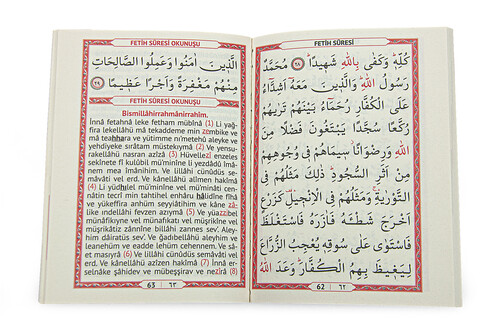 FETİH SÛRESİ
كُلِّهٖ وَكَفٰى بِاللّٰهِ شَهٖيدًا ﴿٢٨﴾ مُحَمَّدٌ
رَسُولُ اللّٰهِ وَالَّذٖينَ مَعَهُٓ اَشِدَّٓاءُ
عَلَى الْكُفَّارِ رُحَمَٓاءُ بَيْنَهُمْ تَرٰيهُمْ
رُكَّعًا سُجَّدًا يَبْتَغُونَ فَضْلًا مِنَ
اللّٰهِ وَرِضْوَانًا سٖيمَاهُمْ فٖى وُجُوهِهِمْ
مِنْ اَثَرِ السُّجُودِ ذٰلِكَ مَثَلُهُمْ فِى
التَّوْرٰيةِ وَمَثَلُهُمْ فِى الْاِنْجٖيلِ كَزَرْعٍ
اَخْرَجَ شَطْـَٔهُ فَاٰزَرَهُ فَاسْتَغْلَظَ
فَاسْتَوٰى عَلٰى سُوقِهٖ يُعْجِبُ الزُّرَّاعَ
لِيَغٖيظَ بِهِمُ الْكُفَّارَ وَعَدَ اللّٰهُ
62 ٦٢
FETİH SÛRESİ OKUNUŞU
الَّذٖينَ اٰمَنُوا وَعَمِلُوا الصَّالِحَاتِ
مِنْهُمْ مَغْفِرَةً وَاَجْرًا عَظٖيمًا ﴿٢٩﴾
FETİH SÛRESİ OKUNUŞU
Bismillâhirrahmânirrahîm.
İnnâ fetahnâ leke fetham mübînâ (1) Li yağ-
fira lekellâhü mâ tekaddeme min zembike ve
mâ teahhara ve yütimme ni'metehû aleyke ve
yehdiyeke sırâtam müstekymâ (2) Ve yensu-
rakellâhü nasran azîzâ (3) Hüvellezî enzeles
sekînete fî kulûbil mü'minîne li yezdâdû îmâ-
nem mea îmânihim. Ve lillâhi cünûdüs se-
mâvâti vel erd. Ve kânellâhü alîmen hakîmâ
(4) Li yüdhılel mü'minîne vel mü'minâti cen-
nâtin tecrî min tahtihel enhâru hâlidîne fîhâ
ve yükeffira anhüm seyyiâtihim ve kâne zâ-
like ındellâhi fevzen azymâ (5) Ve yüazzibel
münâfikıyne vel münâfikati vel müşrikîne vel
müşrikâtiz zânnîne billâhi zannes sev'. Aley-
him dâiratüs sev'. Ve ğadıbellâhü aleyhim ve
leanehüm ve eadde lehüm cehennem. Ve sâ-
et masıyrâ (6) Ve lillâhi cünûdüs semâvâti vel
erd. Ve kânellâhü azîzen hakîmâ (7) İnnâ er-
selnâke şâhidev ve mübeşşirav ve nezîrâ (8)
63 ٦٣